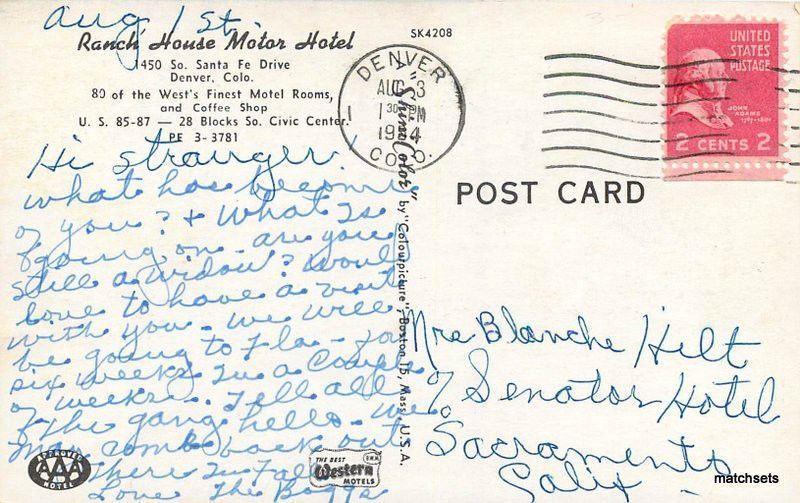 Aug 1st.
Ranch House Motor Hotel
1450 So. Santa Fe Drive
Denver, Colo.
80 of the West's Finest Motel Rooms,
and Coffee Shop
U. S. 85-87 — 28 Blocks So. Civic Center
PE 3-3781
Hi stranger!
what has become
of you? + What Is
going on - are you
still a widow? Would
love to have a visit
with you - we will
be going to Fla - for
six weeks In a Couple
of weeks. Tell all
the gang hello - we
may come back out
there In Fall
Love The Boggs
APPROVED
AAA
HOTEL
THE BEST
Western
MOTELS
SK4208
"ShiniColor"
by "Colourpicture", Boston 15, Mass., U.S.A.
DENVER
AUG 3
1 30 PM
COLO.
UNITED
STATES
POSTAGE
JOHN
ADAMS
1797-1801
2 CENTS 2
POST CARD
Mrs Blanche Hilt
% Senator Hotel
Sacramento
Calif
matchsets